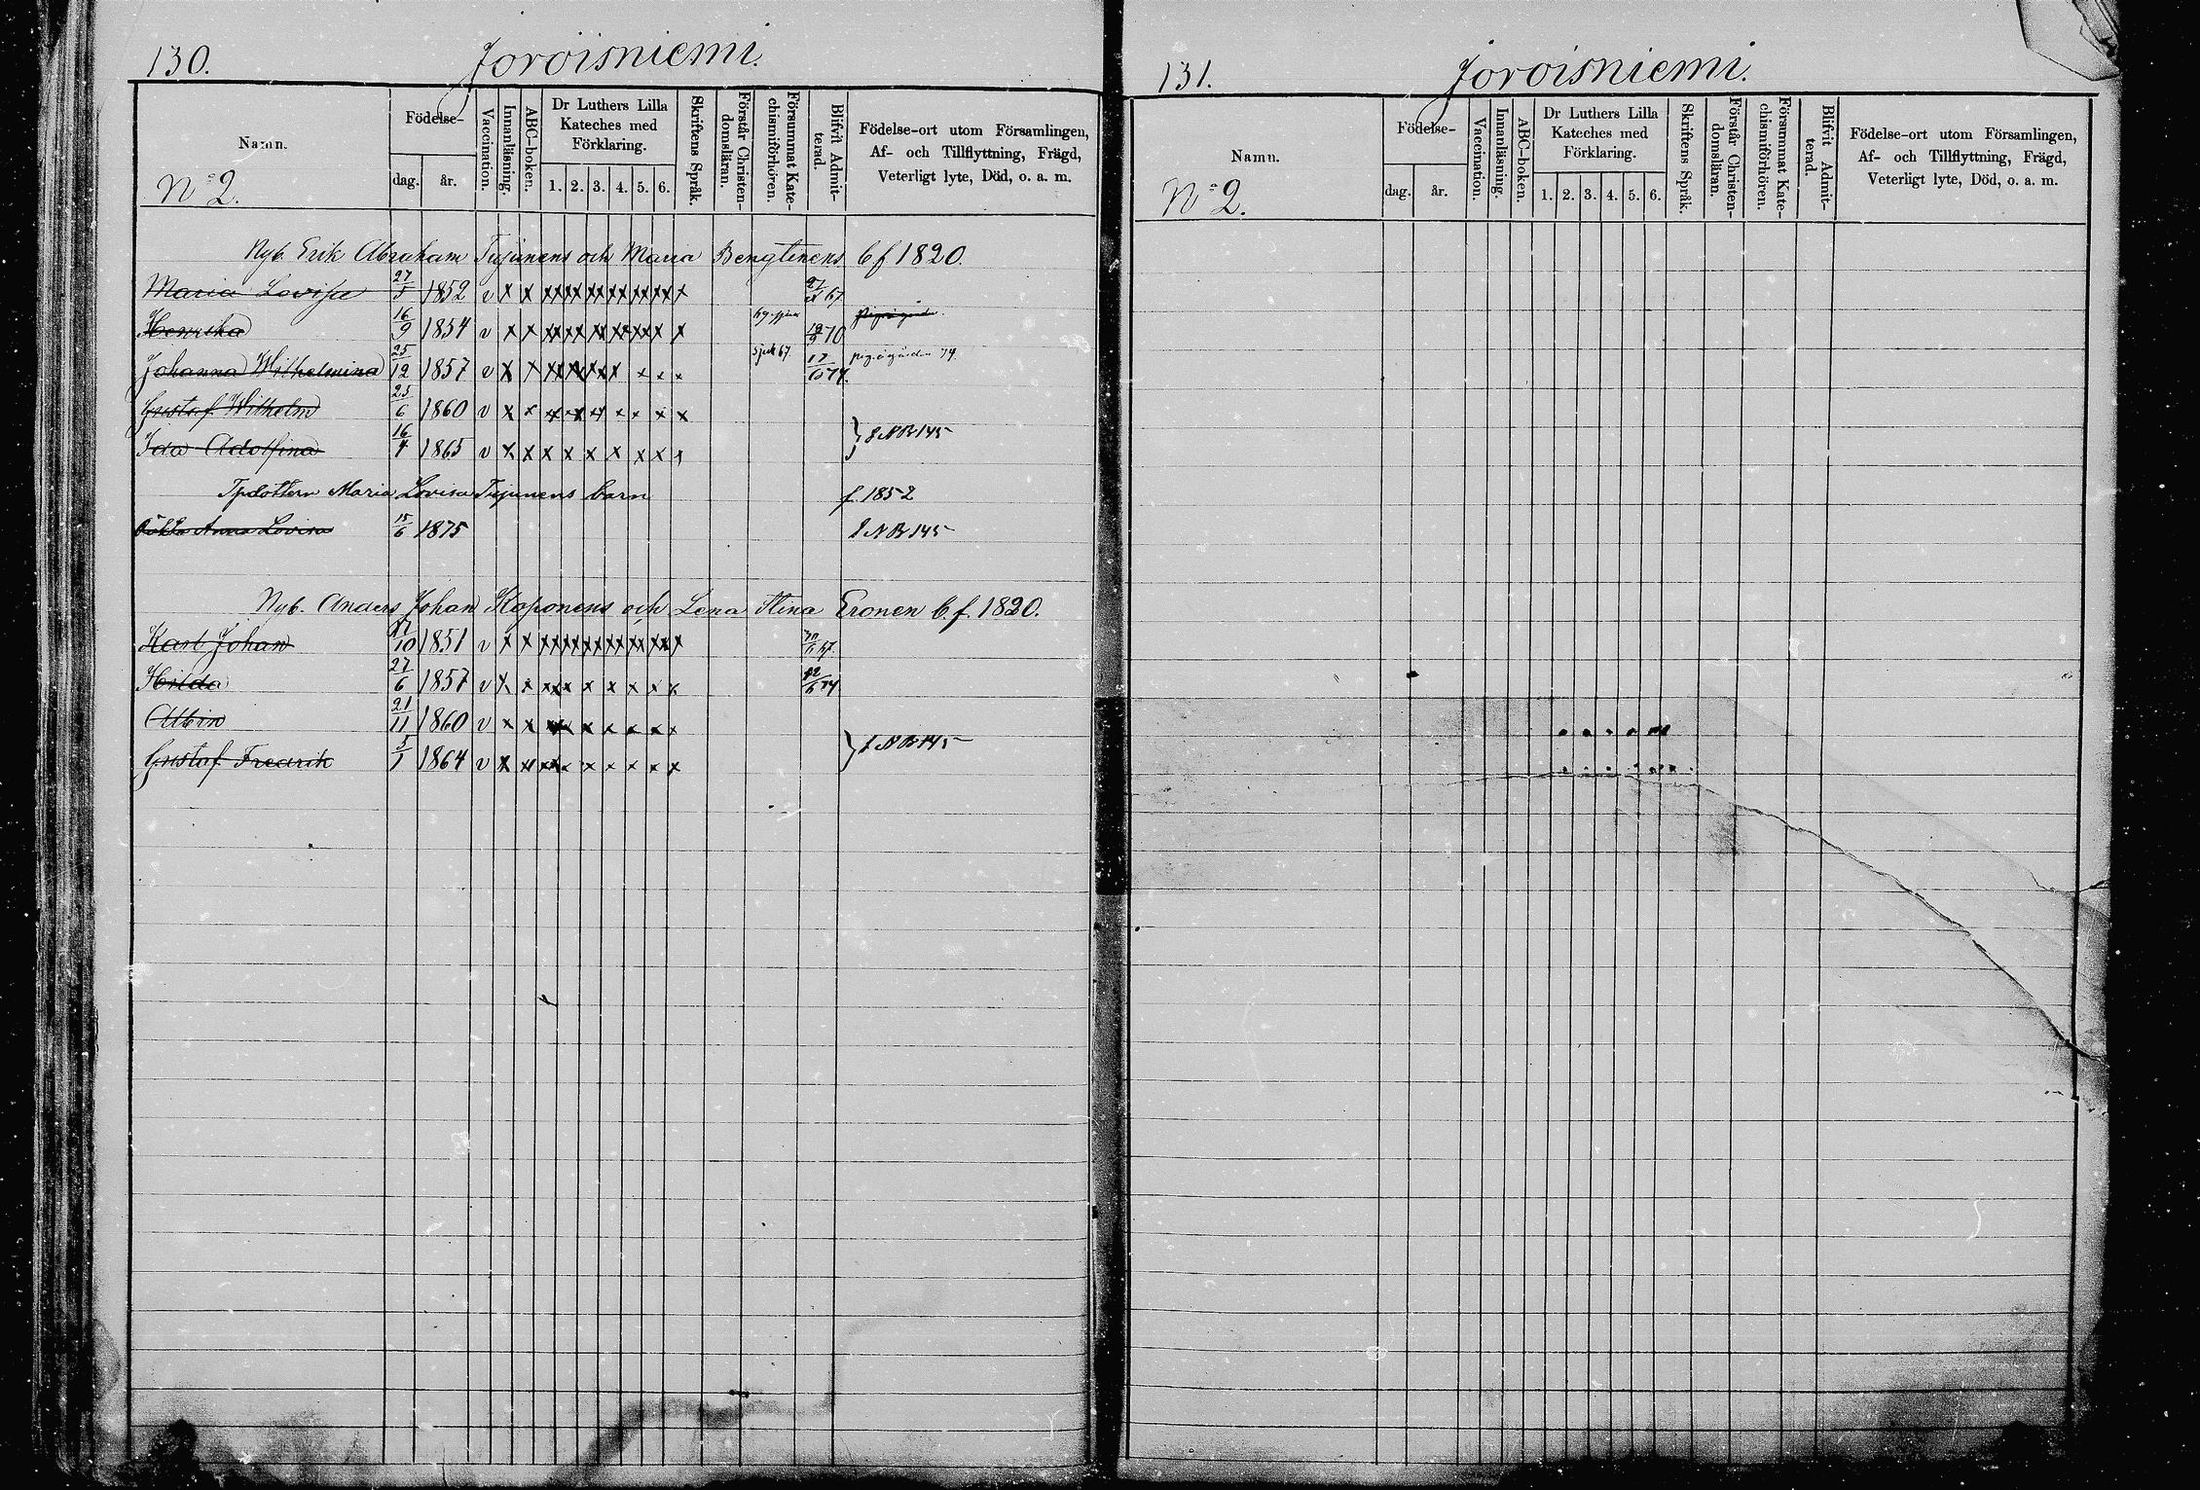 130. Joroisniemi.
Namn.
Födelse-
dag. år.
Vaccination.
Innanläsning.
ABC-boken.
Dr Luthers Lilla Kateches med Förklaring.
1. 2. 3. 4. 5. 6.
Skriftens Språk.
Förstår Christen-domsläran.
Försummat Kate-chismiförhören.
Blifvit Admit-terad.
Födelse-ort utom Församlingen,
Af- och Tillflyttning, Frägd,
Veterligt lyte, Död, o. a. m.
No 2.
Nyb. Erik Abraham Tujunens och Maria Bengtinens b f 1820.
Maria Lovisa 27/5 1852 v x x xx xx xx xx xx xx x 67
Henrika 16/9 1854 v x x xx xx xx xx xx x x 70
Johanna Wilhelmina 25/12 1857 v x x xx xx xx x x x x 17/10 74.
Gustaf Wilhelm 25/6 1860 v x x xx xx x x x x x
Ida Adolfina 16/4 1865 v x x x x x x x x x } NB 145
Maria Lovisa Tujunens barn f. 1852
Anna Lovisa 15/6 1875 NB 145
Nyb. Anders Johan Koponens och Lena Stina Eronen b. f. 1820.
Karl Johan 10 1851 v x x xx xx xx xx xx xx x 67
Hilda 27/6 1857 v x x xx x x x x x x 74
Albin 21/11 1860 v x x x x x x x x x
Gustaf Fredrik 5/1 1864 v x x xx x x x x x x } NB 145
131. Joroisniemi.
Namn.
Födelse-
dag. år.
Vaccination.
Innanläsning.
ABC-boken.
Dr Luthers Lilla Kateches med Förklaring.
1. 2. 3. 4. 5. 6.
Skriftens Språk.
Förstår Christen-domsläran.
Försummat Kate-chismiförhören.
Blifvit Admit-terad.
Födelse-ort utom Församlingen,
Af- och Tillflyttning, Frägd,
Veterligt lyte, Död, o. a. m.
No 2.